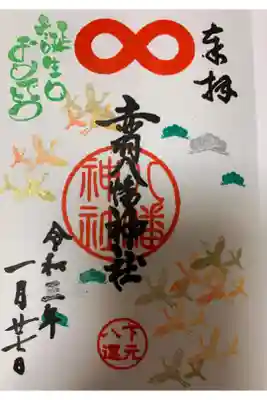 奉拝
誕生日
おめでとう
赤羽八幡神社
八幡
神社
令和三年
一月廿七日
下元
八運